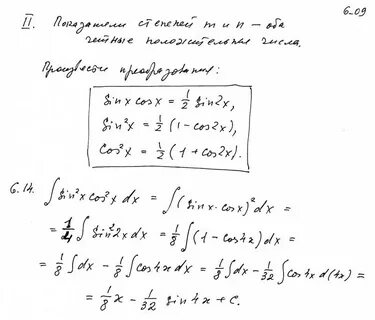 6.09
II. Показатели степеней m и n – оба
чётные положительные числа.
Произвести преобразования:
sin x cos x = 1/2 sin 2x,
sin²x = 1/2 (1 - cos 2x),
cos²x = 1/2 (1 + cos 2x).
6.14. ∫ sin²x cos²x dx = ∫ (sin x · cos x)² dx =
= 1/4 ∫ sin²2x dx = 1/8 ∫ (1 - cos 4x) dx =
= 1/8 ∫ dx - 1/8 ∫ cos 4x dx = 1/8 ∫ dx - 1/32 ∫ cos 4x d(4x) =
= 1/8 x - 1/32 sin 4x + C.